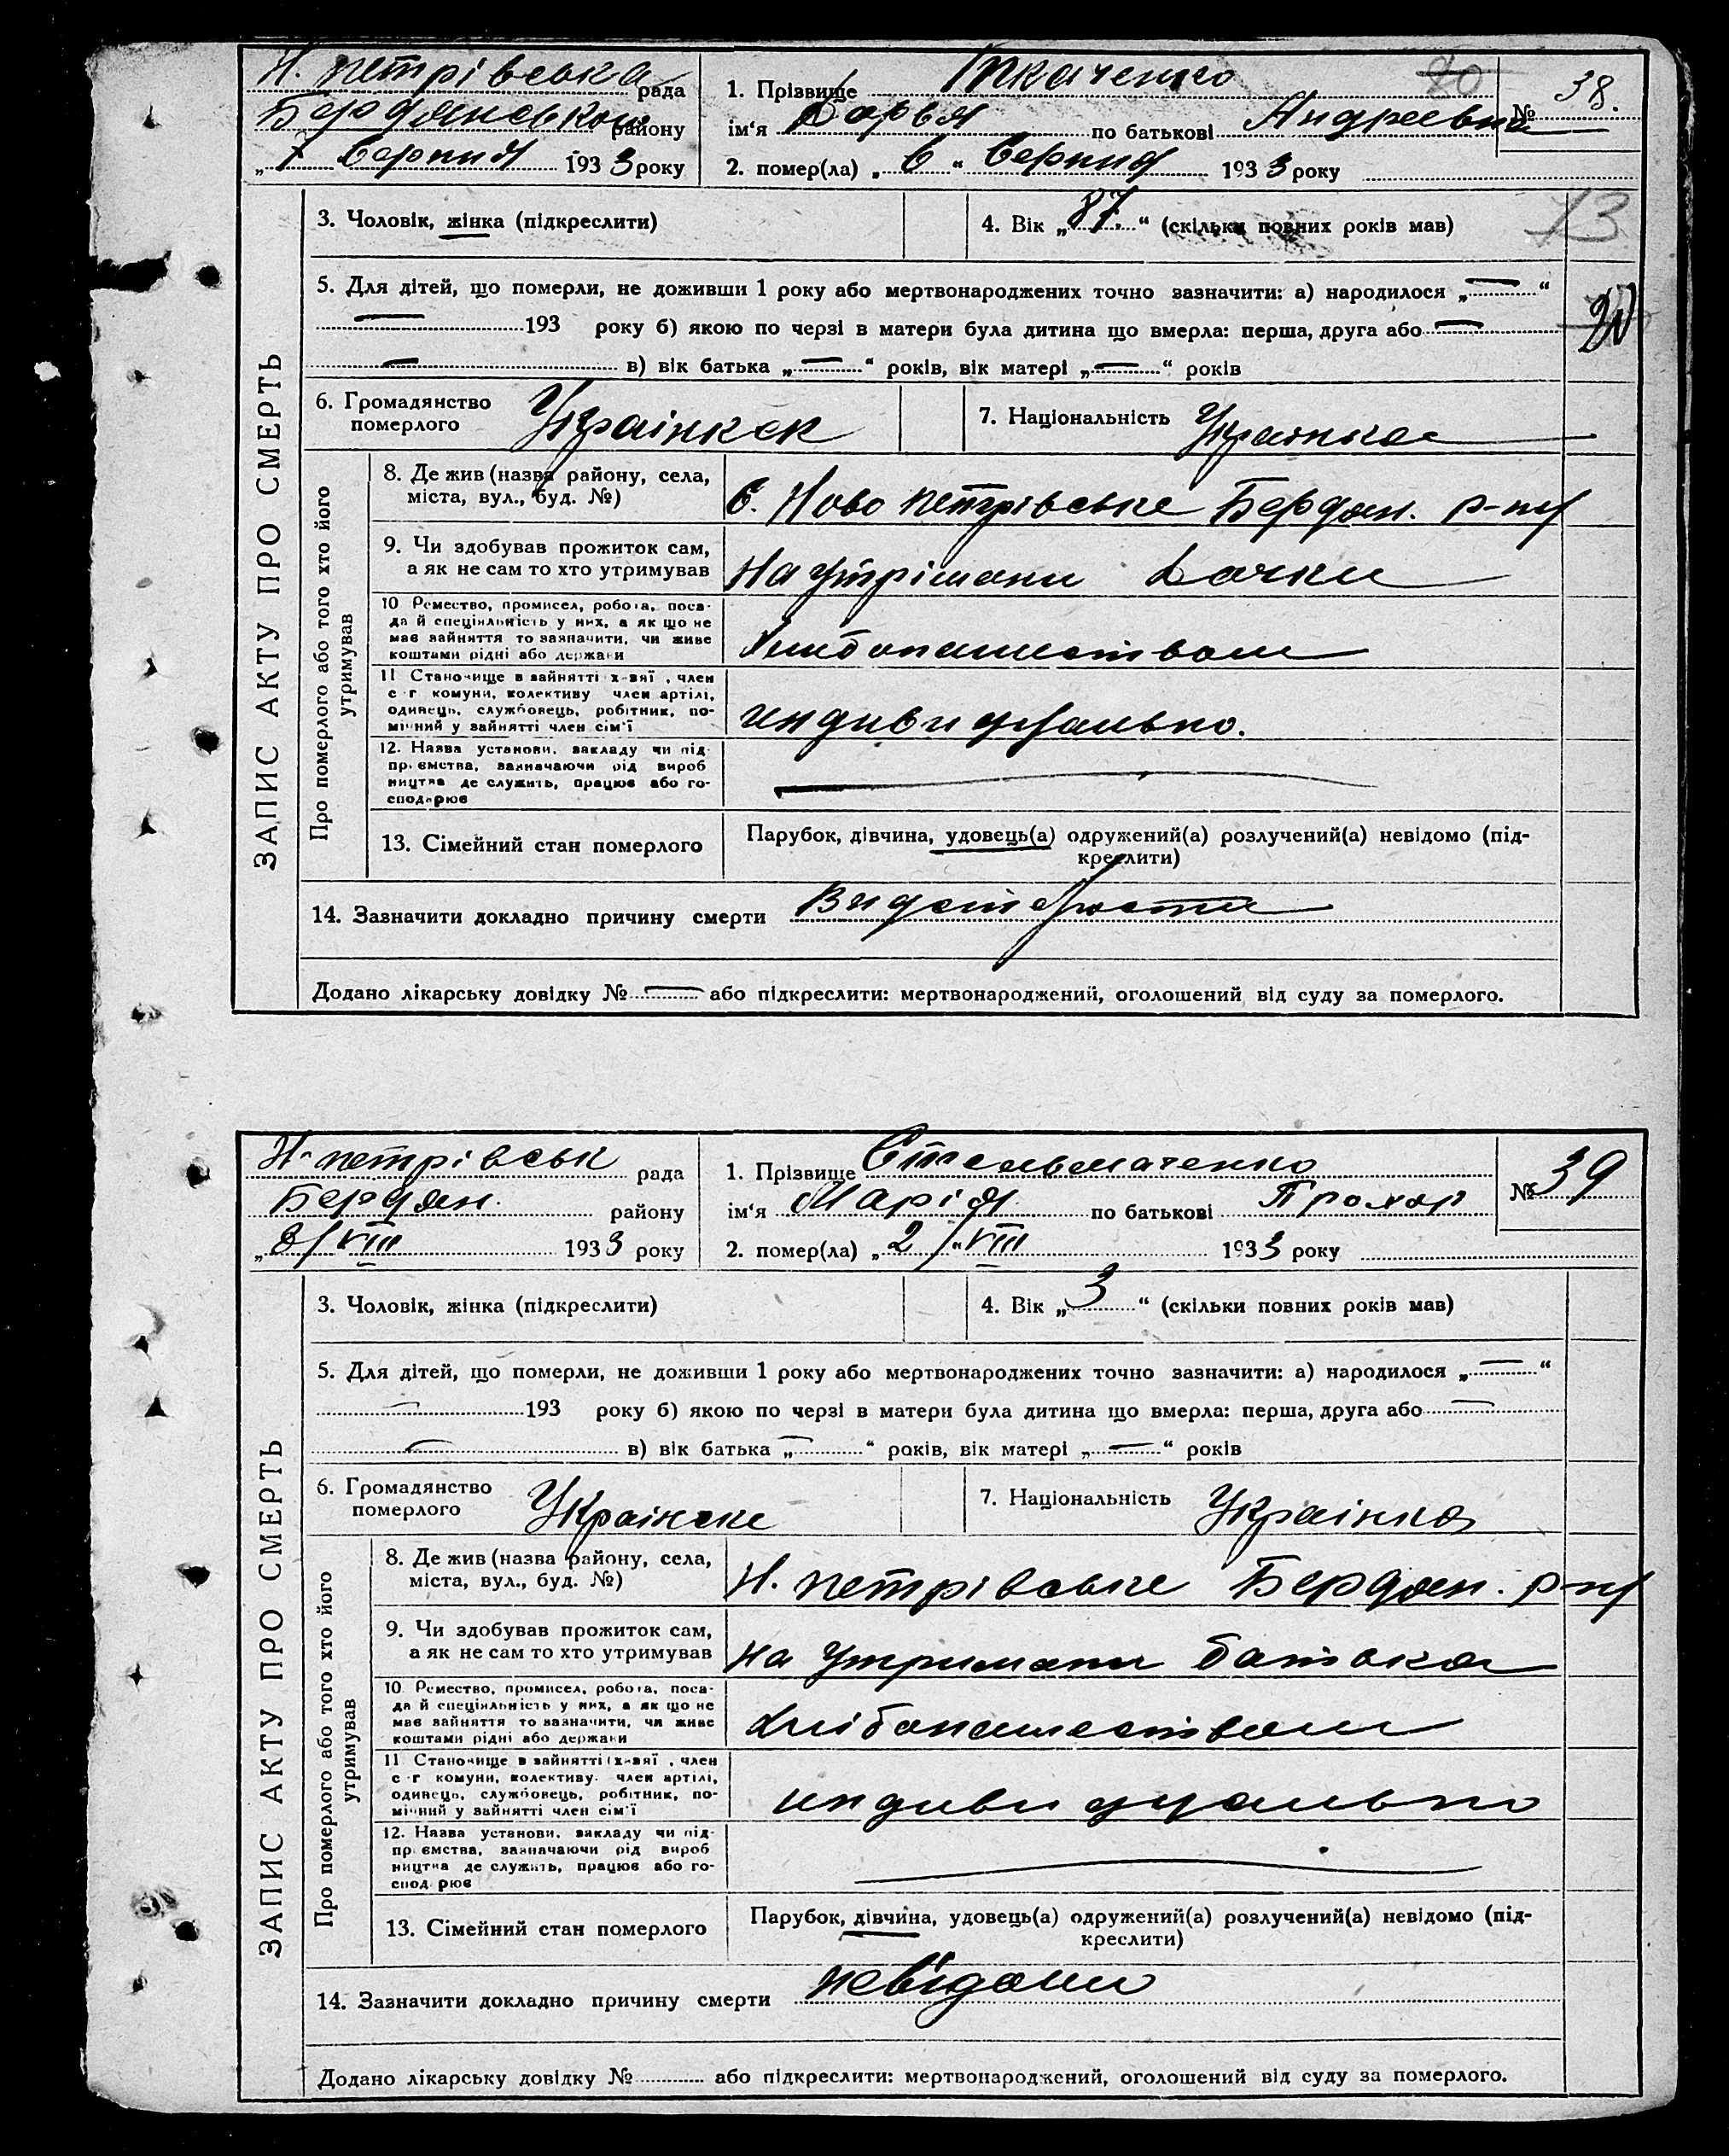 Н. петрівська рада
Бердянського району
„ 7 Серпня 1933 року
1. Прізвище Ткаченко
80
№ 38.
ім‘я Дарья по батькові Андреевна
2. помер(ла) „ 6 “ Серпня 1933 року
ЗАПИС АКТУ ПРО СМЕРТЬ
3. Чоловік, жінка (підкреслити)
4. Вік „ 87. “ (скільки повних років мав)
13
5. Для дітей, що померли, не доживши 1 року або мертвонароджених точно зазначити: а) народилося „ — “
— 193 року б) якою по черзі в матери була дитина що вмерла: перша, друга або —
— в) вік батька „ — “ років, вік матері „ — “ років
6. Громадянство
померлого
7. Національність Украінка
Про померлого або того хто його
утримував
8. Де жив (назва району, села,
міста, вул., буд. №)
с. Ново петрівське Бердян. р-ну
9. Чи здобував прожиток сам,
а як не сам то хто утримував
На утрімани Дочки
10 Ремество, промисел, робота, поса-
да й спеціяльність у них, а як що не
має зайняття то зазначити, чи живе
коштами рідні або держави
Хлібопашеством
11 Становище в зайнятті х-зяї, член
с-г комуни, колективу член артілі,
одинець, службовець, робітник, по-
мічний у зайнятті член сім‘ї
индивидуально.
12. Назва установи, закладу чи під-
приємства, зазначаючи рід вироб
ництва де служить, працює або го-
сподарює
13. Сімейний стан померлого
Парубок, дівчина, удовець(а) одружений(а) розлучений(а) невідомо (під-
креслити)
14. Зазначити докладно причину смерти Від старости
Додано лікарську довідку № — або підкреслити: мертвонароджений, оголошений від суду за померлого.
Н. петрівськ рада
Бердян. району
„ 8/VIII 1933 року
1. Прізвище Стельмаченко
№ 39
ім‘я Марія по батькові Прохор
2. помер(ла) „ 2 /“ VIII 1933 року
ЗАПИС АКТУ ПРО СМЕРТЬ
3. Чоловік, жінка (підкреслити)
4. Вік „ 3 “ (скільки повних років мав)
5. Для дітей, що померли, не доживши 1 року або мертвонароджених точно зазначити: а) народилося „ — “
— 193 року б) якою по черзі в матери була дитина що вмерла: перша, друга або —
— в) вік батька „ — “ років, вік матері „ — “ років
6. Громадянство
померлого
Украінске
7. Національність Украінка
Про померлого або того хто його
утримував
8. Де жив (назва району, села,
міста, вул., буд. №)
Н. петрівське Бердян. р-ну
9. Чи здобував прожиток сам,
а як не сам то хто утримував
На утримани батька
10 Ремество, промисел, робота, поса-
да й спеціяльність у них, а як що не
має зайняття то зазначити, чи живе
коштами рідні або держави
Хлібопашеством
11 Становище в зайнятті х-зяї, член
с-г комуни, колективу член артілі,
одинець, службовець, робітник, по-
мічний у зайнятті член сім‘ї
индивидуально
12. Назва установи, закладу чи під-
приємства, зазначаючи рід вироб
ництва де служить, працює або го-
сподарює
13. Сімейний стан померлого
Парубок, дівчина, удовець(а) одружений(а) розлучений(а) невідомо (під-
креслити)
14. Зазначити докладно причину смерти невідомо
Додано лікарську довідку № або підкреслити: мертвонароджений, оголошений від суду за померлого.